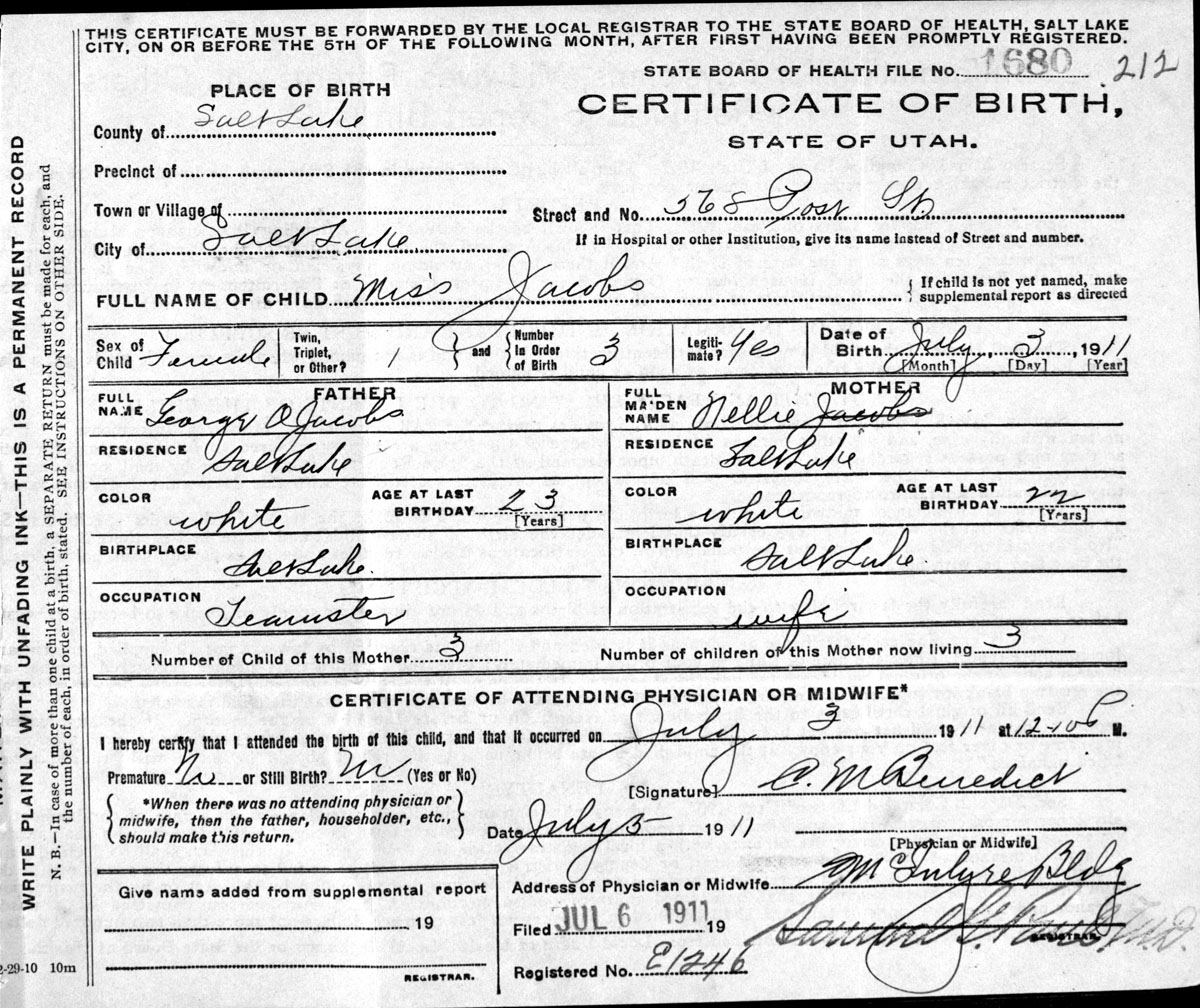 THIS CERTIFICATE MUST BE FORWARDED BY THE LOCAL REGISTRAR TO THE STATE BOARD OF HEALTH, SALT LAKE
CITY, ON OR BEFORE THE 5TH OF THE FOLLOWING MONTH, AFTER FIRST HAVING BEEN PROMPTLY REGISTERED.
STATE BOARD OF HEALTH FILE No. 1680 212
PLACE OF BIRTH
CERTIFICATE OF BIRTH,
STATE OF UTAH.
County of Salt Lake
Precinct of
Town or Village of
Street and No. 568 Post St
City of Salt Lake
If in Hospital or other Institution, give its name instead of Street and number.
FULL NAME OF CHILD Miss Jacobs { If child is not yet named, make
supplemental report as directed
Sex of Child Female Twin, Triplet, or Other? 1 and Number In Order of Birth 3 Legitimate? Yes Date of Birth July 3, 1911
[Month] [Day] [Year]
FATHER MOTHER
FULL NAME George O Jacobs FULL MAIDEN NAME Nellie Jacobs
RESIDENCE Salt Lake RESIDENCE Salt Lake
COLOR white AGE AT LAST BIRTHDAY 23 [Years] COLOR white AGE AT LAST BIRTHDAY 22 [Years]
BIRTHPLACE Salt Lake. BIRTHPLACE Salt Lake.
OCCUPATION Teamster OCCUPATION wife
Number of Child of this Mother 3 Number of children of this Mother now living 3
CERTIFICATE OF ATTENDING PHYSICIAN OR MIDWIFE*
I hereby certify that I attended the birth of this child, and that it occurred on July 3 1911 at 12-10 P M.
Premature No or Still Birth? No (Yes or No)
[Signature] C. M Benedict
{ *When there was no attending physician or
midwife, then the father, householder, etc.,
should make this return. }
Date July 5 1911
[Physician or Midwife]
Address of Physician or Midwife McIntyre Bldg
Give name added from supplemental report
19
REGISTRAR.
Filed JUL 6 1911 19
REGISTRAR.
Registered No. E1246
2-29-10 10m
WRITE PLAINLY WITH UNFADING INK—THIS IS A PERMANENT RECORD
N. B.—In case of more than one child at a birth, a SEPARATE RETURN must be made for each, and
the number of each, in order of birth, stated. SEE INSTRUCTIONS ON OTHER SIDE.